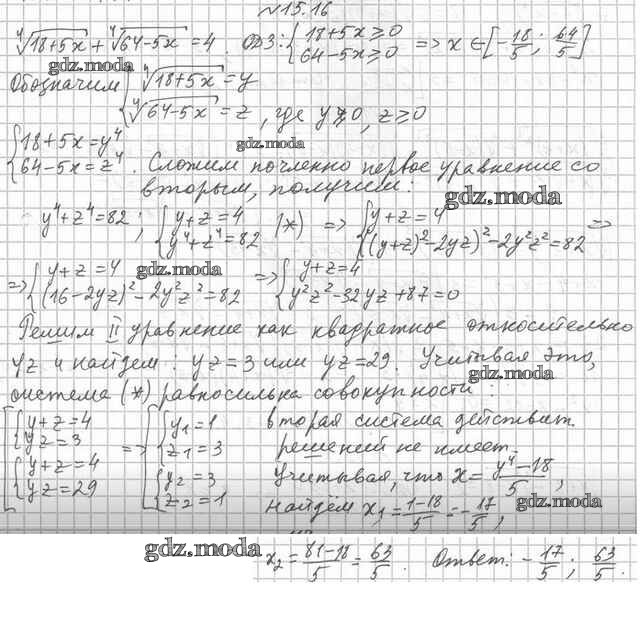 №15.16
∜18+5x + ∜64-5x = 4. ОДЗ: { 18+5x ≥ 0 64-5x ≥ 0 => x ∈ [-18/5; 64/5]
gdz.moda
Обозначим { ∜18+5x = y ∜64-5x = z, где y ≥ 0, z ≥ 0
gdz.moda
{ 18+5x = y⁴ 64-5x = z⁴. Сложим почленно первое уравнение со
вторым, получим:
gdz.moda
y⁴+z⁴=82; { y+z=4 y⁴+z⁴=82 (*) => { y+z=4 ((y+z)²-2yz)²-2y²z²=82 =>
gdz.moda
=> { y+z=4 (16-2yz)²-2y²z²=82 => { y+z=4 y²z²-32yz+87=0
Решим II уравнение как квадратное относительно
yz и найдем: yz=3 или yz=29. Учитывая это,
gdz.moda
система (*) равносильна совокупности:
[ { y+z=4 yz=3 { y+z=4 yz=29 => [ { y₁=1 z₁=3 { y₂=3 z₂=1
вторая система действит.
решений не имеет.
Учитывая, что x = y⁴-18/5,
найдём x₁ = 1-18/5 = -17/5,
gdz.moda
gdz.moda
x₂ = 81-18/5 = 63/5. Ответ: -17/5; 63/5.